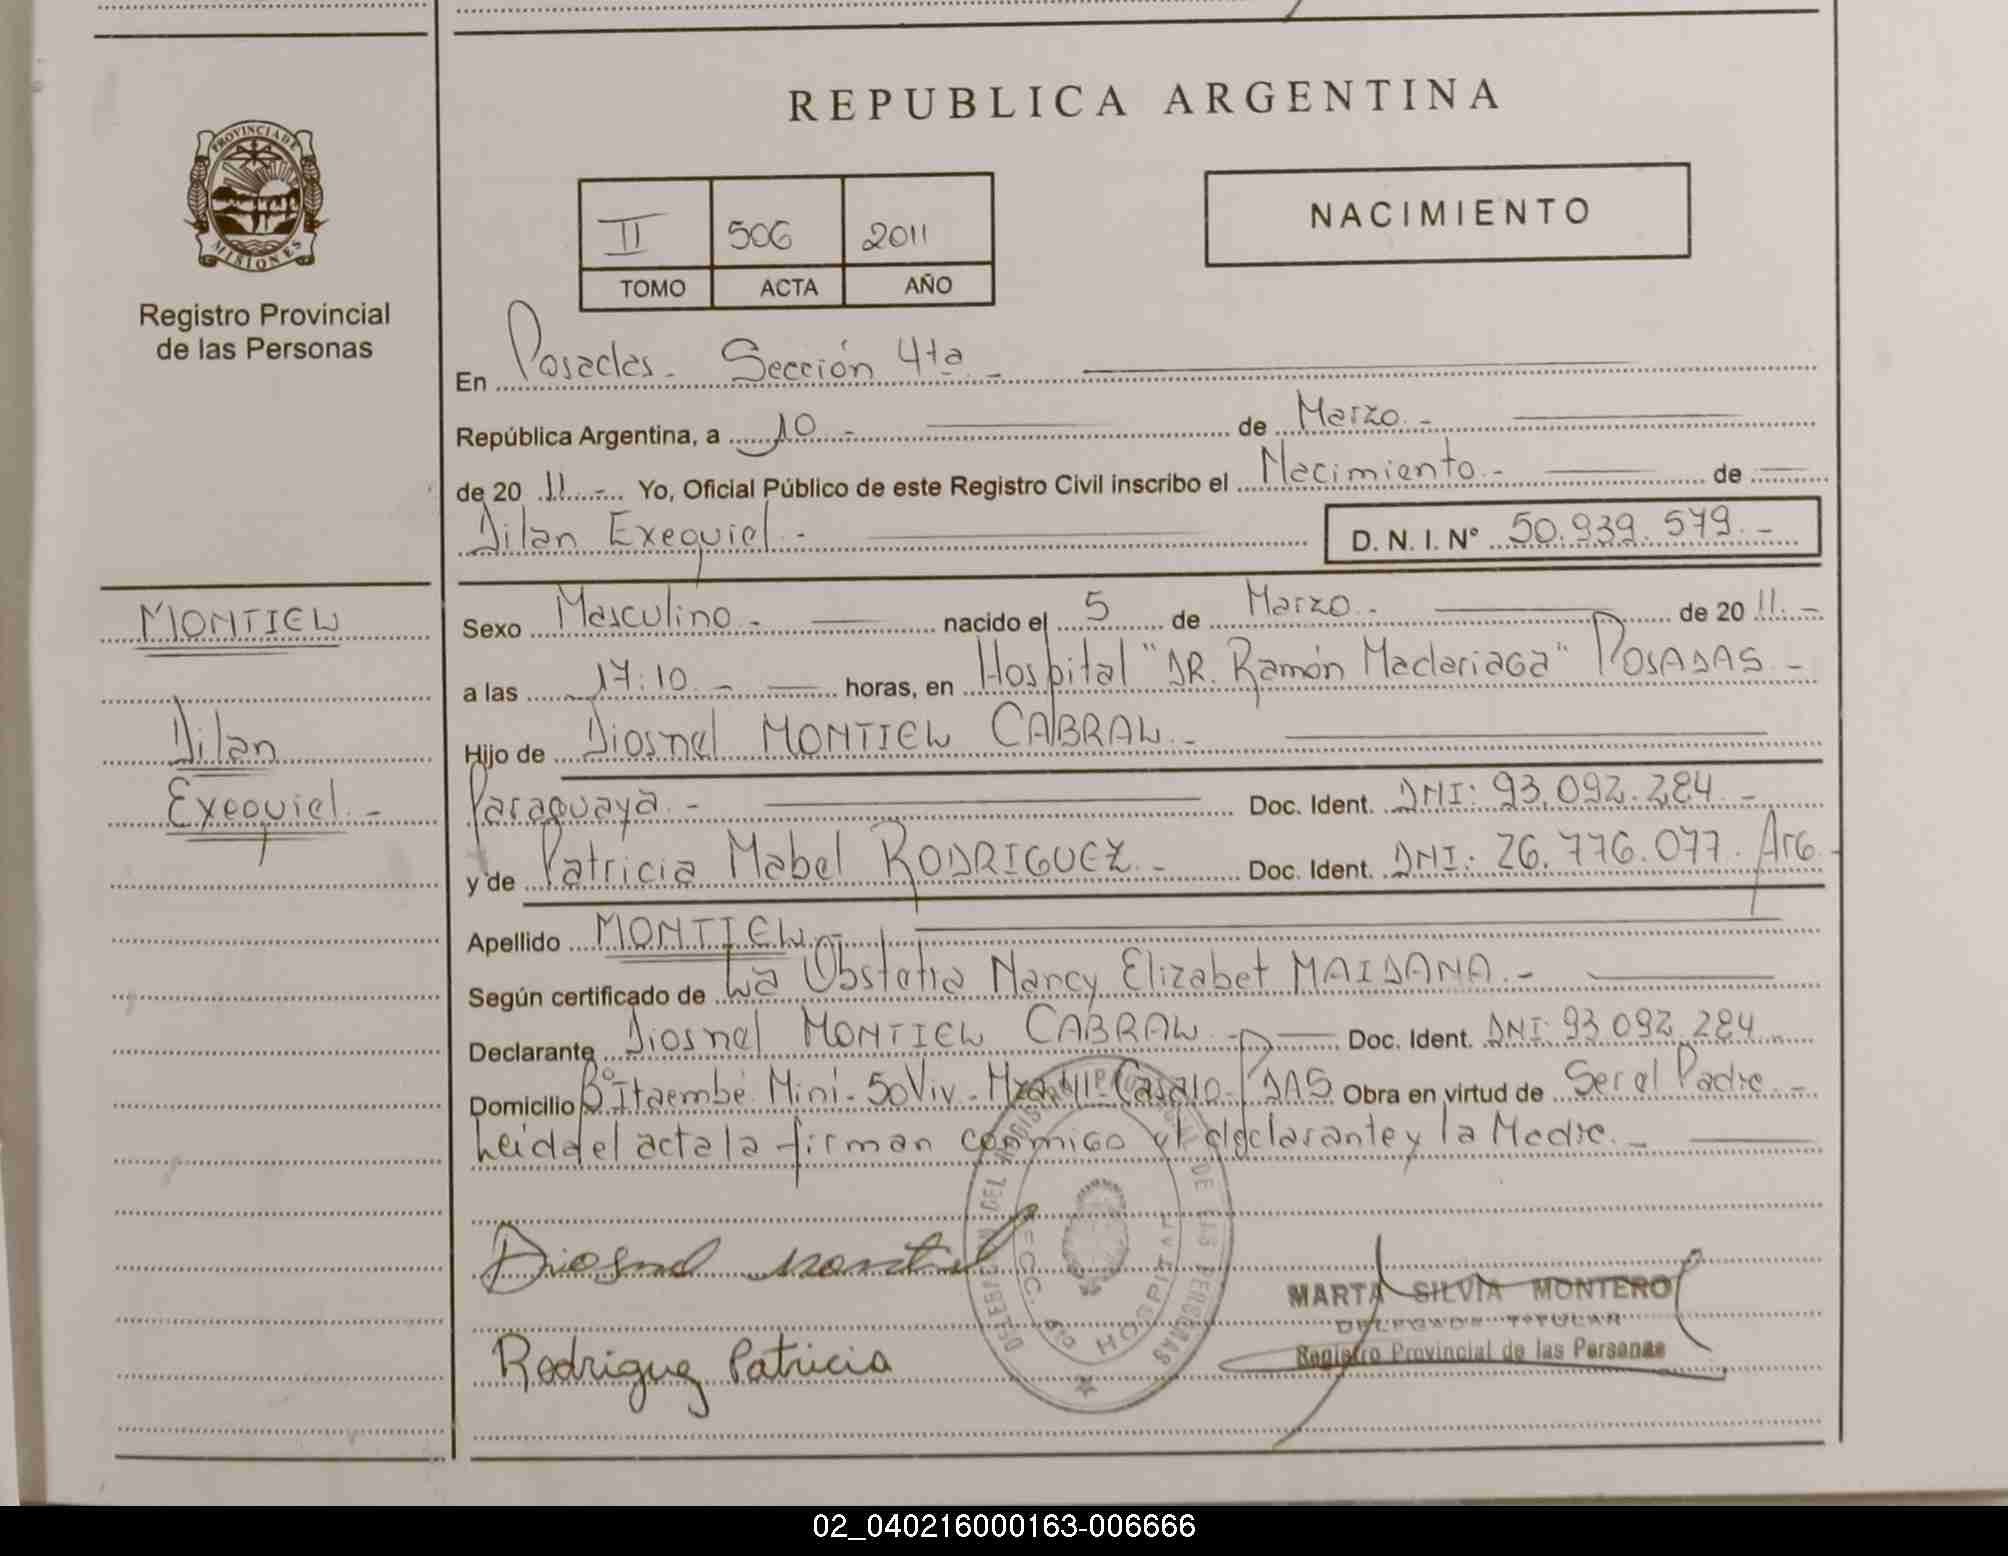 REPUBLICA ARGENTINA
PROVINCIA DE
MISIONES
Registro Provincial
de las Personas
II 506 2011
TOMO ACTA AÑO
NACIMIENTO
En Posadas - Sección 4ta -
República Argentina, a 10 - de Marzo -
de 20 11 - Yo, Oficial Público de este Registro Civil inscribo el Nacimiento - de
Dilan Exequiel - D. N. I. Nº 50.939.579 -
MONTIEL
Dilan
Exequiel -
Sexo Masculino - nacido el 5 de Marzo - de 20 11 -
a las 17:10 - horas, en Hospital "DR. Ramón Madariaga" POSADAS -
Hijo de Diosnel MONTIEL CABRAL -
Paraguaya - Doc. Ident. DNI: 93.092.284 -
y de Patricia Mabel RODRIGUEZ - Doc. Ident. DNI: 26.776.077. Arg -
Apellido MONTIEL -
Según certificado de La Obstetra Nancy Elizabet MAIDANA -
Declarante Diosnel MONTIEL CABRAL - Doc. Ident. DNI: 93.092.284
Domicilio Bº Itaembé Miní - 50 Viv - Casa 10 - PDAS Obra en virtud de Ser el Padre -
Leida el acta la firman conmigo el declarante y la Madre -
Diosnel Montiel
Rodriguez Patricia
HOSPITAL
MARTA SILVIA MONTERO
DELEGADA TITULAR
Registro Provincial de las Personas
02_040216000163-006666